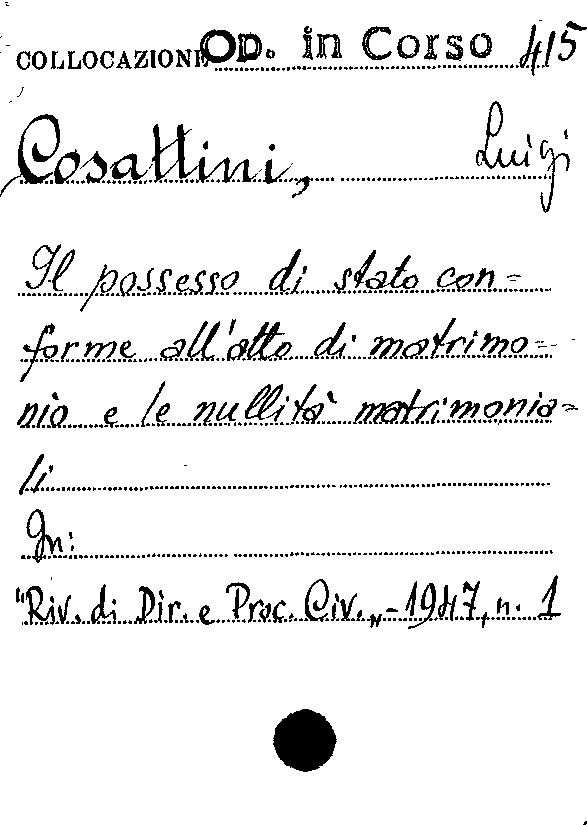 COLLOCAZIONE OD. in Corso 415
Cosattini, Luigi
Il possesso di stato con=
forme all'atto di matrimo=
nio e le nullità matrimonia=
li
In:
"Riv. di Dir. e Proc. Civ.„ - 1947, n. 1